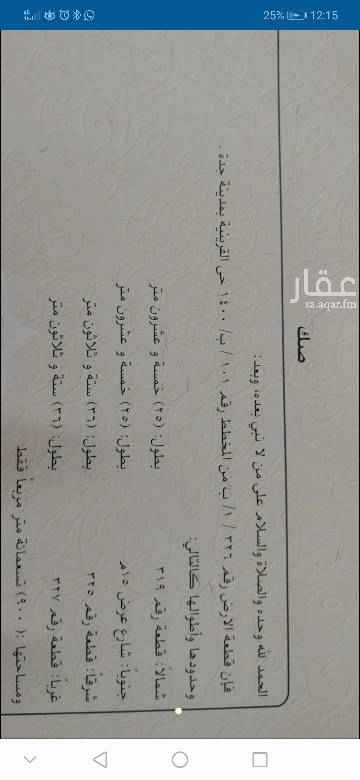 25% 12:15
عقار
sa.aqar.fm
صك
الحمد لله وحده والصلاة والسلام على من لا نبي بعده، وبعد:
فإن قطعة الارض رقم ٣٢٦ / ١ / ب من المخطط رقم ١٠١ / ب/ ١٤٠٠ حى القرينية بمدينة جدة .
وحدودها وأطوالها كالتالي:
شمالاً: قطعة رقم ٣١٩ بطول: (٢٥) خمسة و عشرون متر
جنوباً: شارع عرض ١٥م بطول: (٢٥) خمسة و عشرون متر
شرقاً: قطعة رقم ٣٢٥ بطول: (٣٦) ستة و ثلاثون متر
غرباً: قطعة رقم ٣٢٧ بطول: (٣٦) ستة و ثلاثون متر
ومساحتها :( ٩٠٠) تسعمائة متر مربعاً فقط